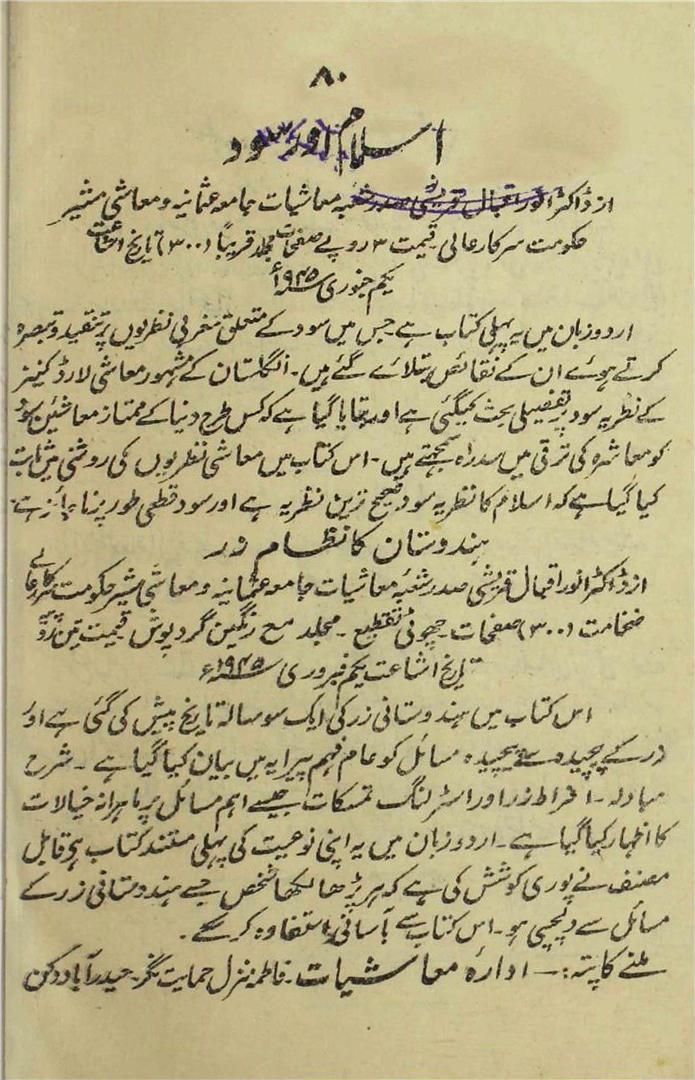 ۸۰
اسلام اور سود
از ڈاکٹر انور اقبال قریشی صدر شعبہ معاشیات جامعہ عثمانیہ و معاشی مشیر
حکومت سرکار عالی قیمت ۳ روپے صفحات مجلد قریباً (۳۰۰) تاریخ اشاعت
یکم جنوری ۱۹۴۵ء
اردو زبان میں یہ پہلی کتاب ہے جس میں سود کے متعلق مغربی نظریوں پر تنقید و تبصرہ
کرتے ہوئے ان کے نقائص بتلائے گئے ہیں۔ انگلستان کے مشہور معاشی لارڈ کینز
کے نظریہ سود پر تفصیلی بحث کیگئی ہے اور بتایا گیا ہے کہ کس طرح دنیا کے ممتاز معاشئین سود
کو معاشرہ کی ترقی میں سدراہ سمجھتے ہیں۔ اس کتاب میں معاشی نظریوں کی روشنی میں ثابت
کیا گیا ہے کہ اسلام کا نظریہ سود صحیح ترین نظریہ ہے اور سود قطعی طور پر ناجائز ہے۔
ہندوستان کا نظام زر
از ڈاکٹر انور اقبال قریشی صدر شعبہ معاشیات جامعہ عثمانیہ و معاشی مشیر حکومت سرکار عالی
ضخامت (۳۰۰) صفحات۔ چھوٹی تقطیع۔ مجلد مع رنگین گرد پوش قیمت تین روپیہ
تاریخ اشاعت یکم فبروری ۱۹۴۵ء
اس کتاب میں ہندوستانی زر کی ایک سو سالہ تاریخ پیش کی گئی ہے اور
زر کے پیچیدہ سے پیچیدہ مسائل کو عام فہم پیرایہ میں بیان کیا گیا ہے۔ شرح
مبادلہ۔ افراط زر اور اسٹرلنگ تمسکات جیسے اہم مسائل پر ماہرانہ خیالات
کا اظہار کیا گیا ہے۔ اردو زبان میں یہ اپنی نوعیت کی پہلی مستند کتاب ہے قابل
مصنف نے پوری کوشش کی ہے کہ ہر پڑھا لکھا شخص جسے ہندوستانی زر کے
مسائل سے دلچسپی ہو۔ اس کتاب سے بآسانی استفادہ کر سکے۔
ملنے کا پتہ:۔ ادارۂ معاشیات۔ فاطمہ منزل حمایت نگر۔ حیدرآباد دکن